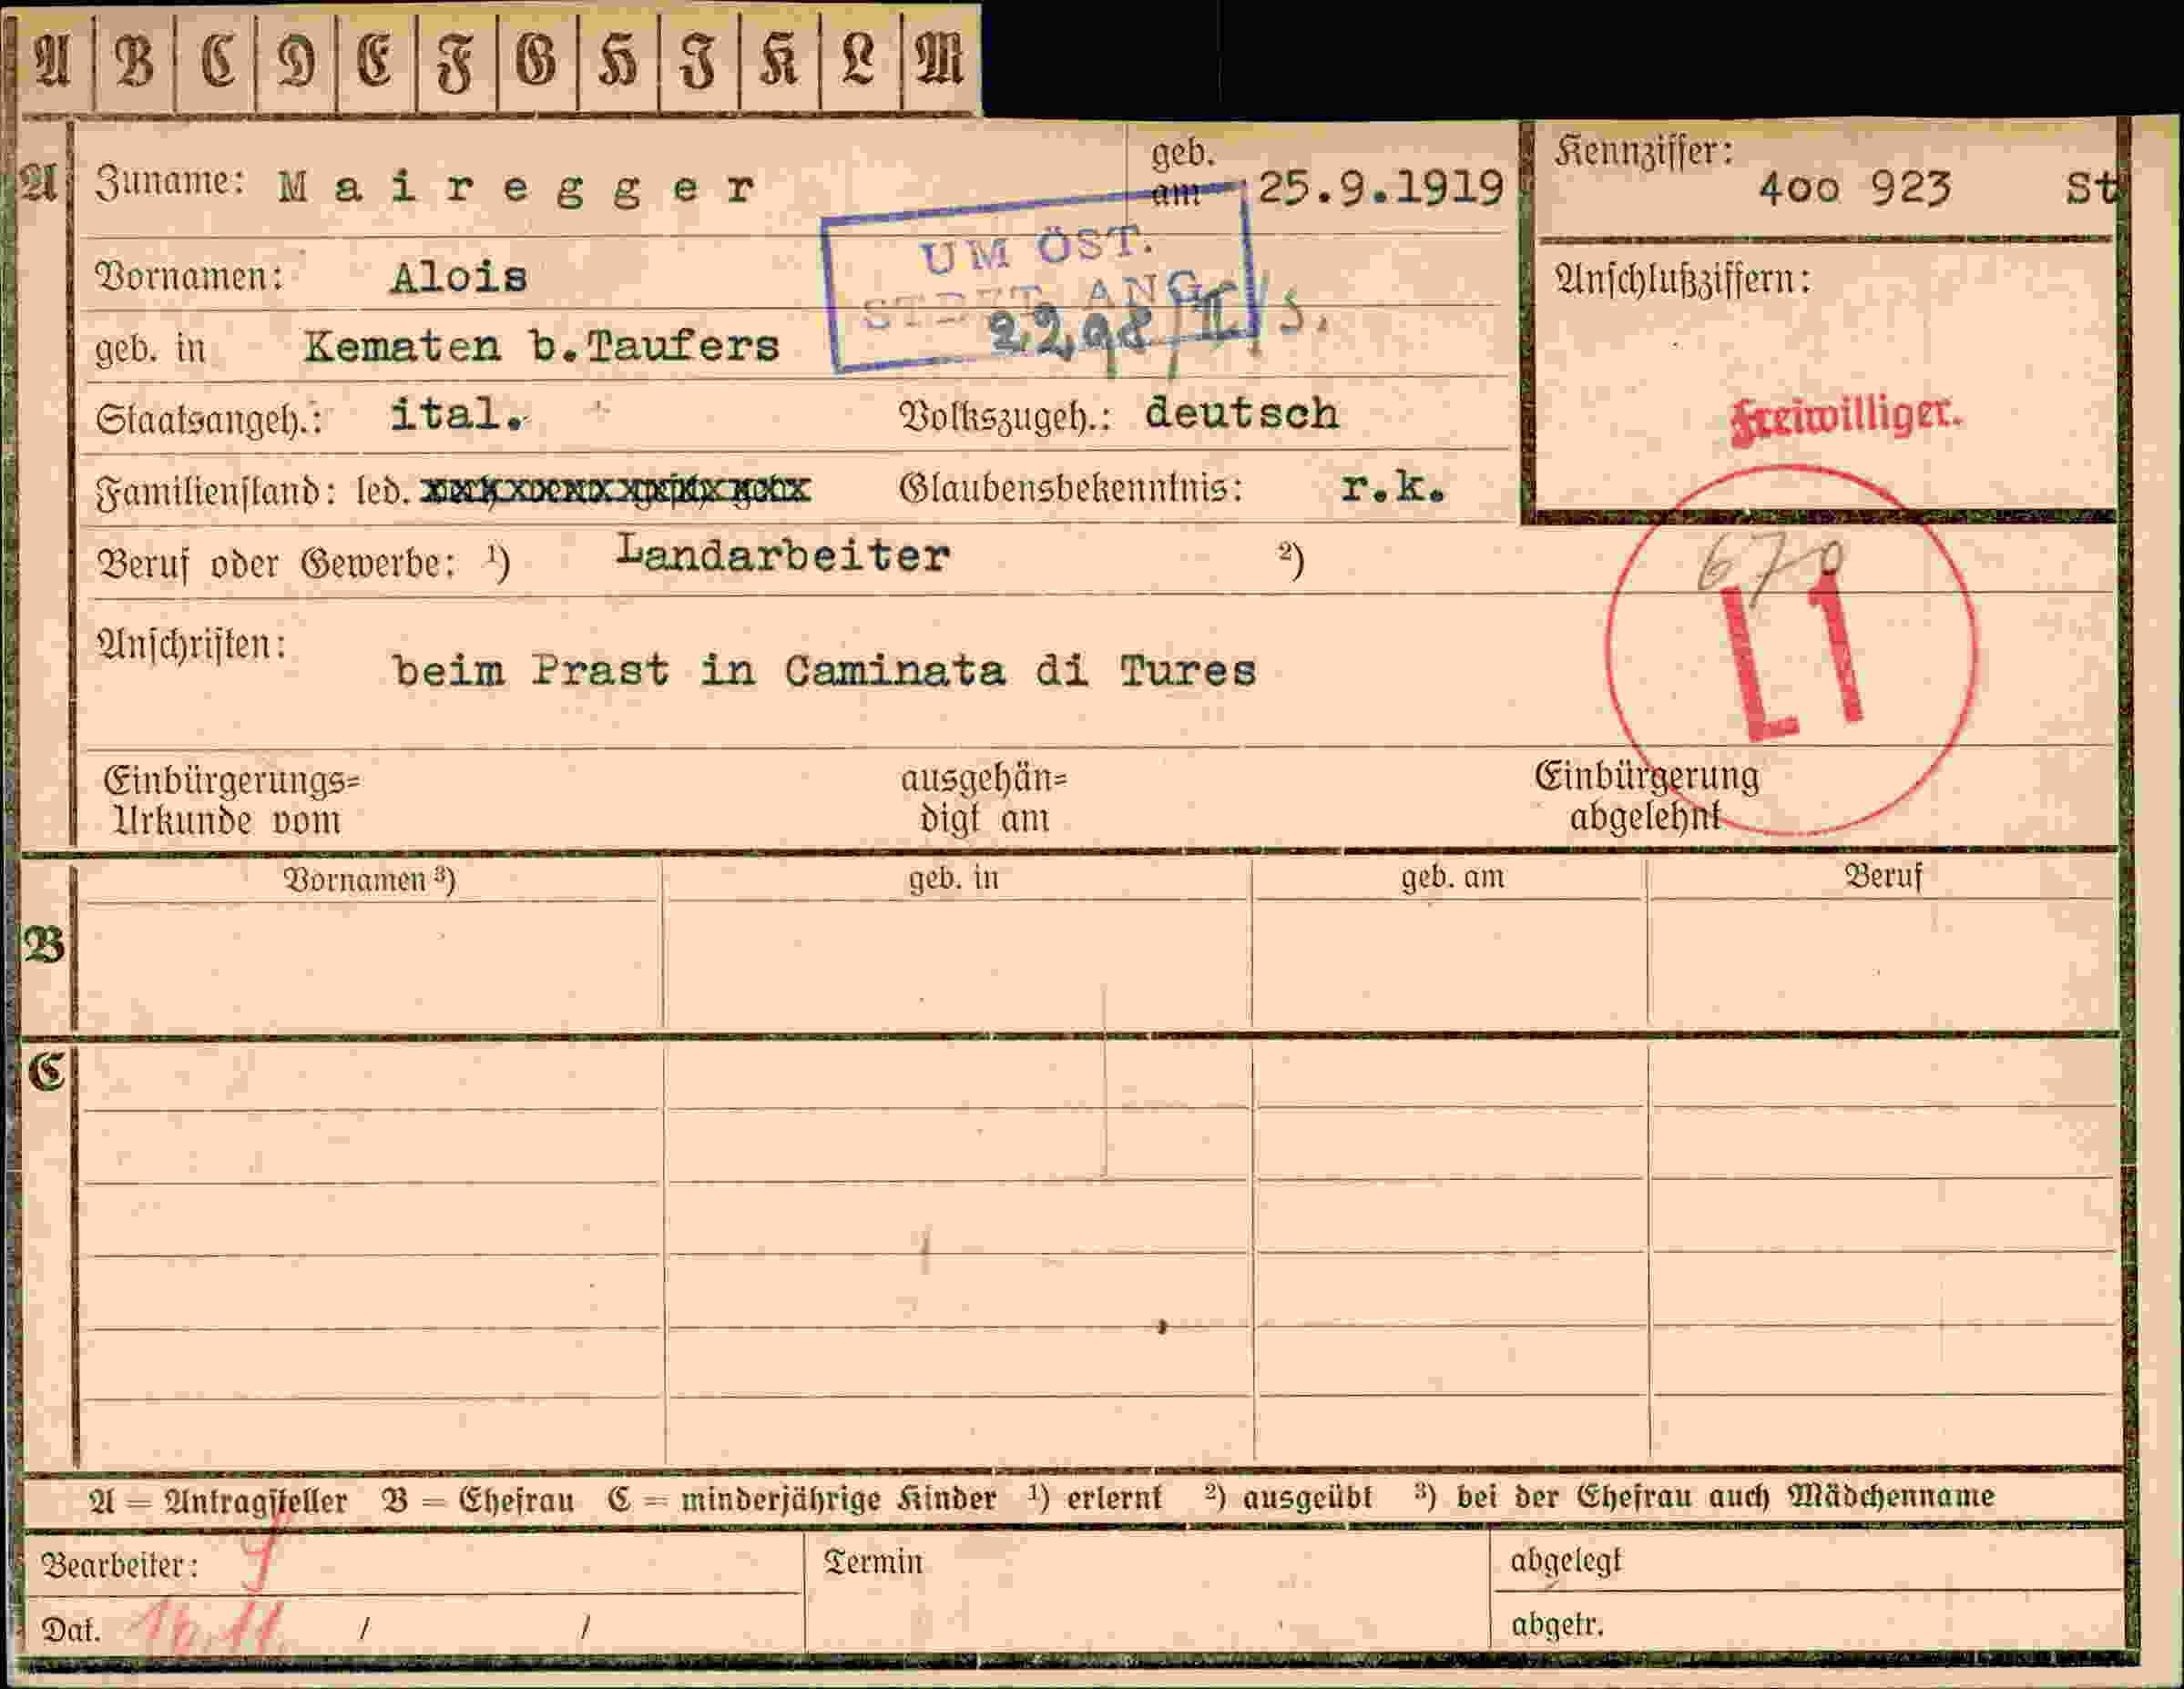 A B C D E F G H I K L M
A Zuname: Mairegger geb. am 25.9.1919 Kennziffer: 4oo 923 St
UM ÖST.
Vornamen: Alois Anschlußziffern:
STBT. ANG
geb. in Kematen b.Taufers
Staatsangeh.: ital. Volkszugeh.: deutsch Freiwilliger.
Familienstand: led. Glaubensbekenntnis: r.k.
Beruf oder Gewerbe: ¹) Landarbeiter ²) 670
L1
Anschriften: beim Prast in Caminata di Tures
Einbürgerungs= ausgehän= Einbürgerung
Urkunde vom digt am abgelehnt
Vornamen ³) geb. in geb. am Beruf
B
C
A = Antragsteller B = Ehefrau C = minderjährige Kinder ¹) erlernt ²) ausgeübt ³) bei der Ehefrau auch Mädchenname
Bearbeiter: Termin abgelegt
Dat. / / abgetr.